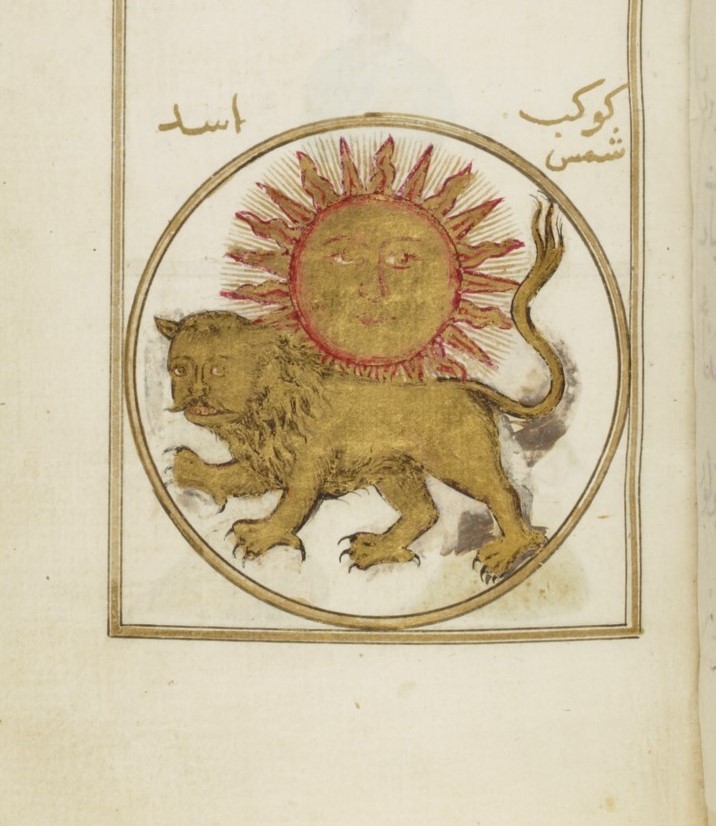 كوكب
شمس
اسد